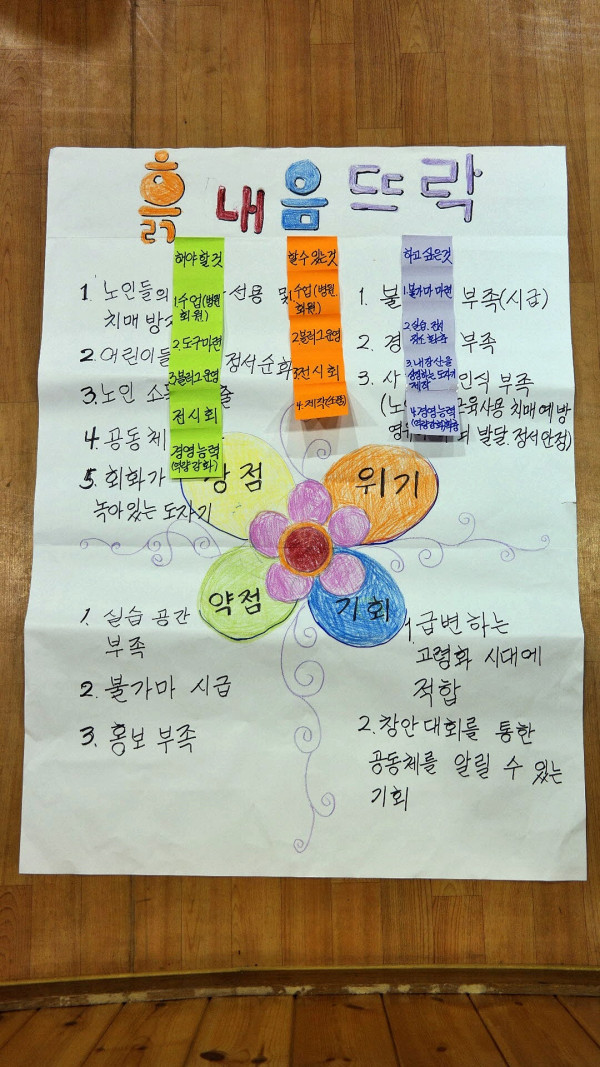 흙내음뜨락
해야할것
1.수업(병원.
회원)
2.도구마련
3.블러그운영
전시회
경영능력
(역량강화)
할수있는것
1.수업(병원.
회원)
2.블러그운영
3.전시회
4.제작(소품)
하고싶은것
1.불가마 마련
2.실습.전시
장소 확충
3.내장산을
상징하는 도자기
제작
4.경영능력
(역량강화)
1. 노인들의 선용 및
치매 방
2. 어린이들 정서순화
3. 노인 소
4. 공동체
5. 회화가
녹아있는 도자기
강점
1. 불 부족(시급)
2. 경 부족
3. 사 인식 부족
(노 사용 치매예방
영 발달.정서안정)
위기
약점
1. 실습 공간
부족
2. 불가마 시급
3. 홍보 부족
기회
1. 급변하는
고령화 시대에
적합
2. 창안대회를 통한
공동체를 알릴 수 있는
기회